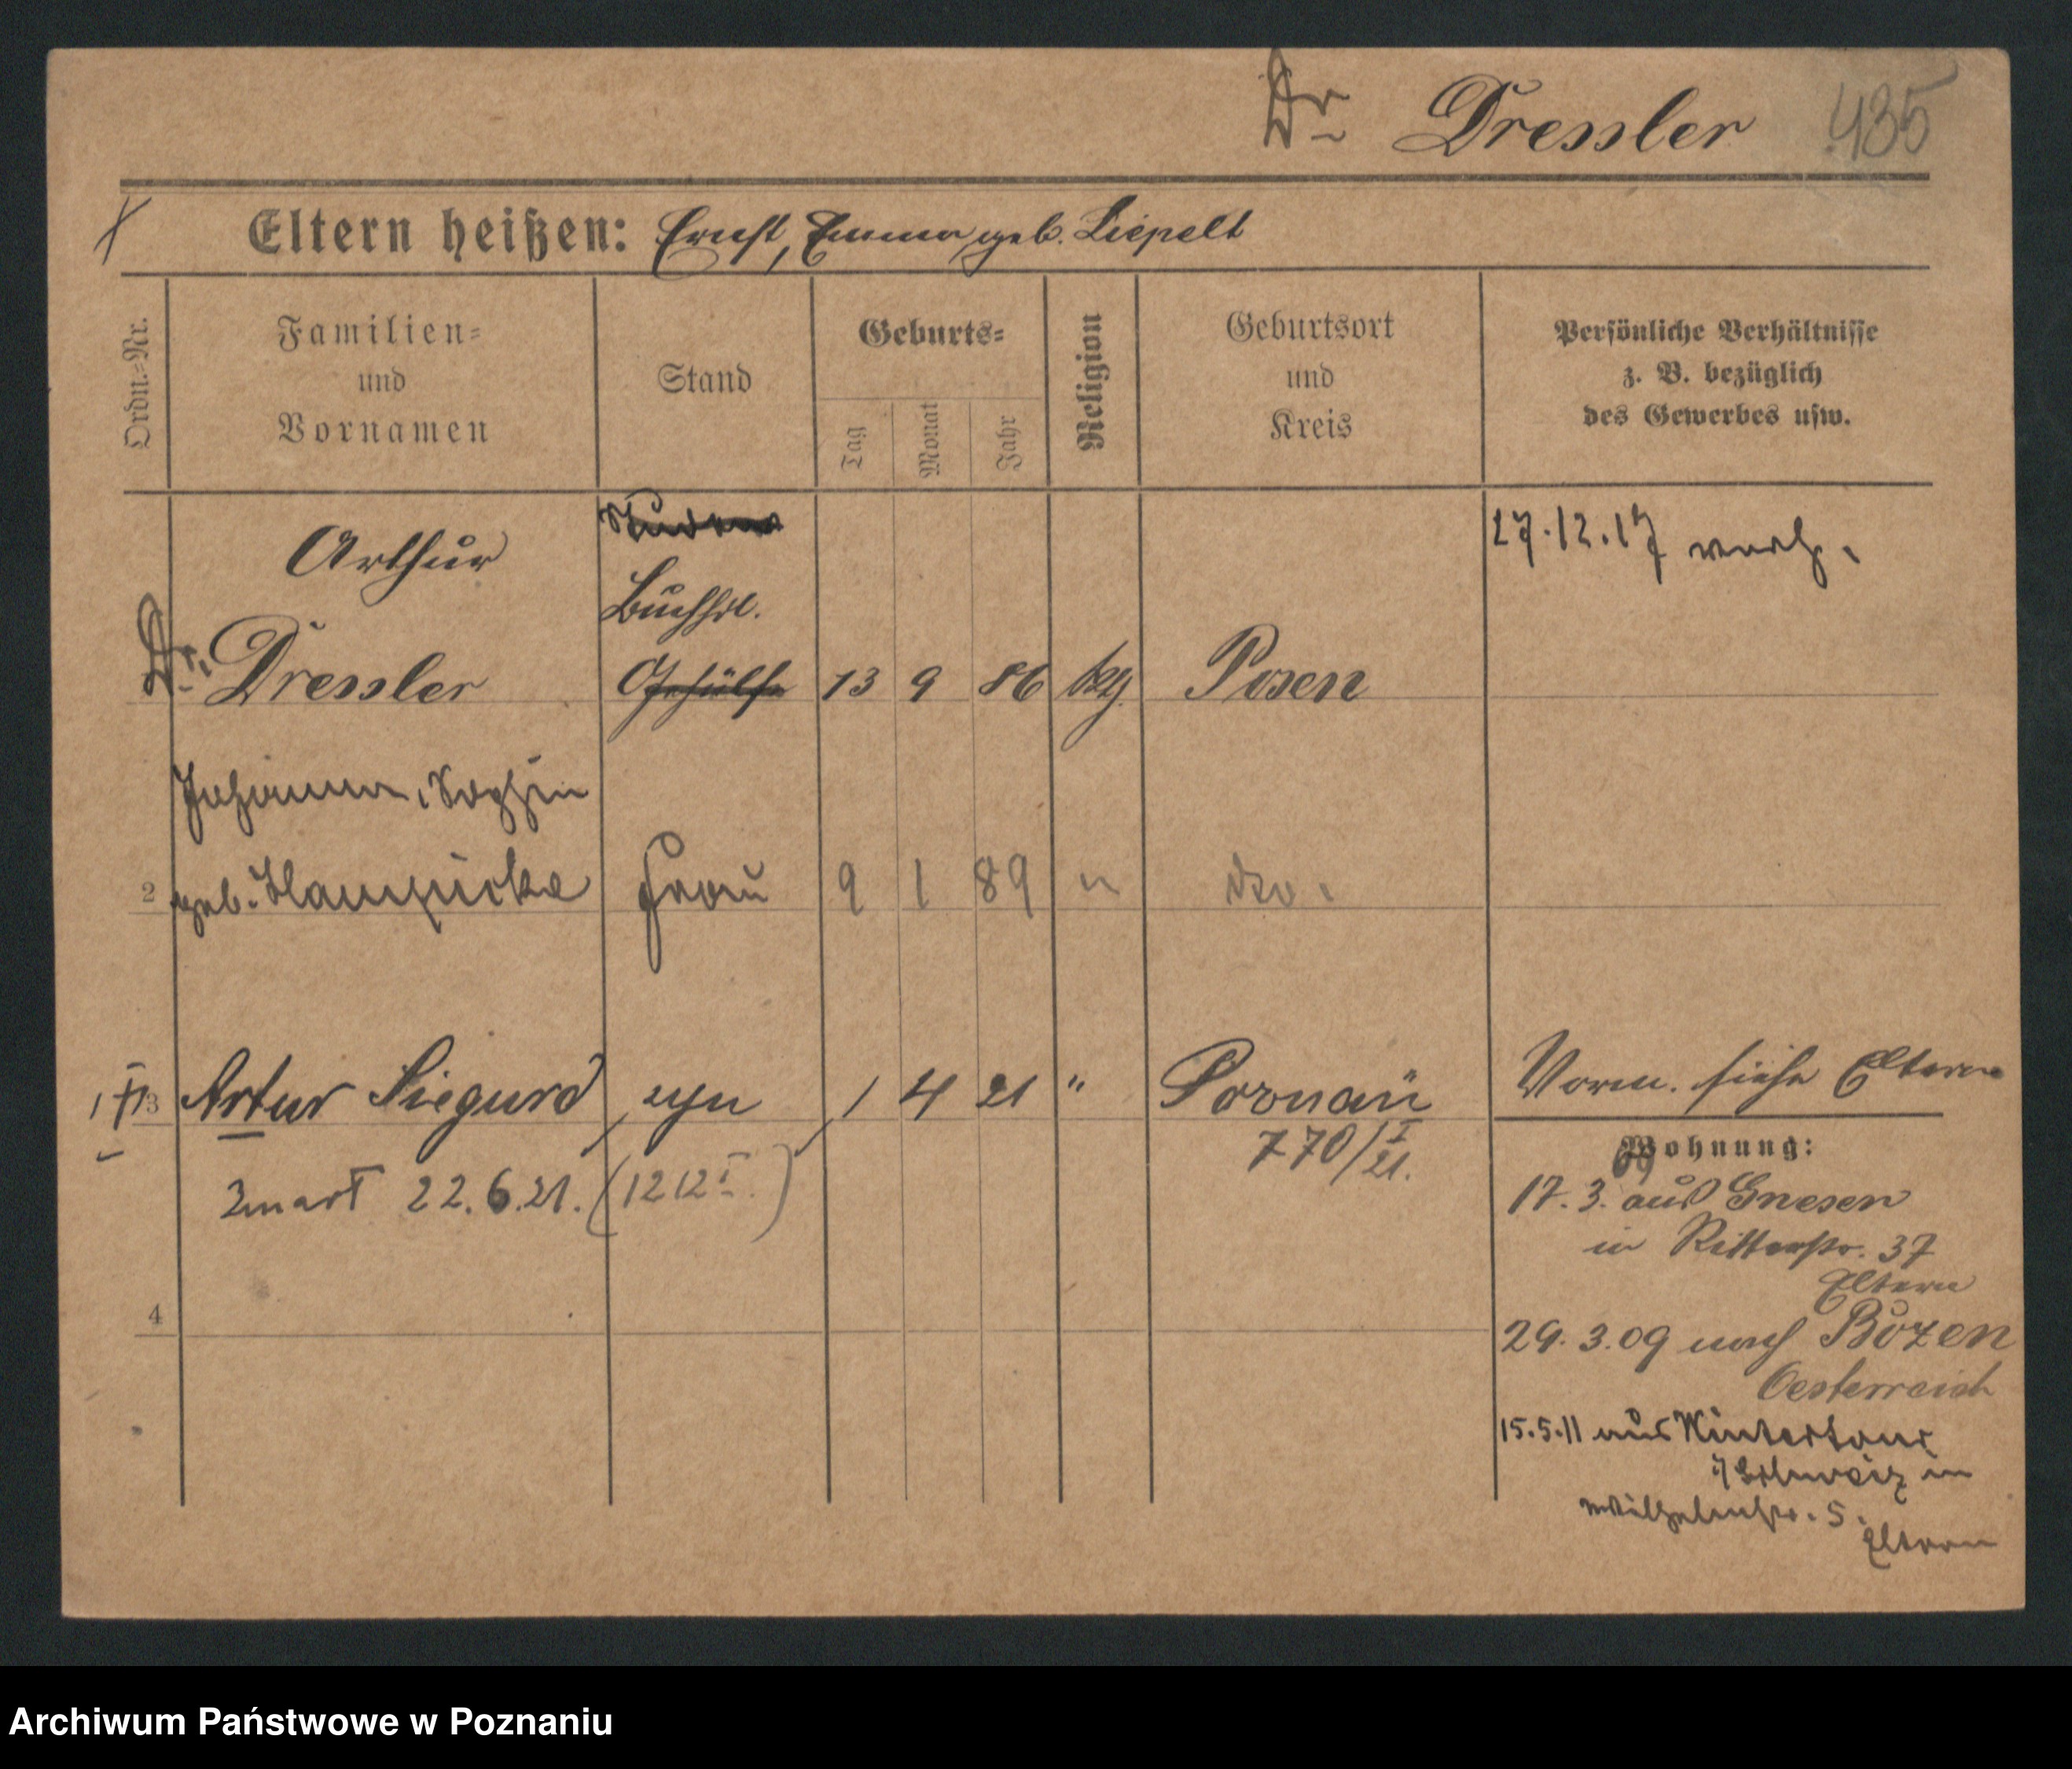 Dr Dressler 435
Eltern heißen: Ernst, Emma geb. Liepelt
Ordn.=Nr.
Familien=
und
Vornamen
Stand
Geburts=
Tag
Monat
Jahr
Religion
Geburtsort
und
Kreis
Persönliche Verhältnisse
z. B. bezüglich
des Gewerbes usw.
Arthur
Dr. Dressler
Buchhdl.
Gehülfe
13 9 86
Posen
27.12.17 verh.
Johanna, Sophie
2 geb. Hampicke Frau 9 1 89 " dto.
3 Artur Siegurd syn 1 4 21 " Poznań
770/I 21.
Vorm. siehe Eltern
Zmarł 22.6.21. (1212 I.)
4
Wohnung:
17.3. 09 aus Gnesen
in Ritterstr. 37
Eltern
29.3.09 nach Bozen
Oesterreich
15.5.11 aus Wintertour
Schweiz in
Wilhelmstr. 5.
Eltern
Archiwum Państwowe w Poznaniu